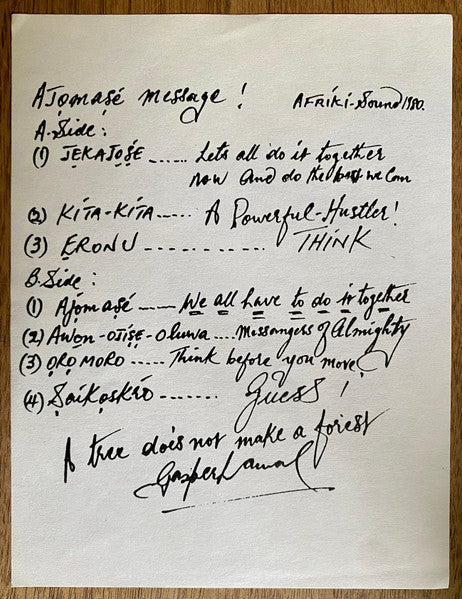 Ajọmasé message!
AFRIKI-Sound 1980.
A.Side:
(1) JẸKAJỌṢE ...... Lets all do it together
now and do the best we can
(2) KITA-KITA ...... A Powerful-Hustler!
(3) ERONU ........... THINK
B.Side:
(1) Ajọmaṣé ...... We all have to do it together
(2) Awọn-OJIṢẸ-Oluwa .... Messangers of Almighty
(3) ỌRỌ MORO ..... Think before you move
(4) Ṣaikọskró ....... Guess!
A tree does not make a forest
Gasper Lawal